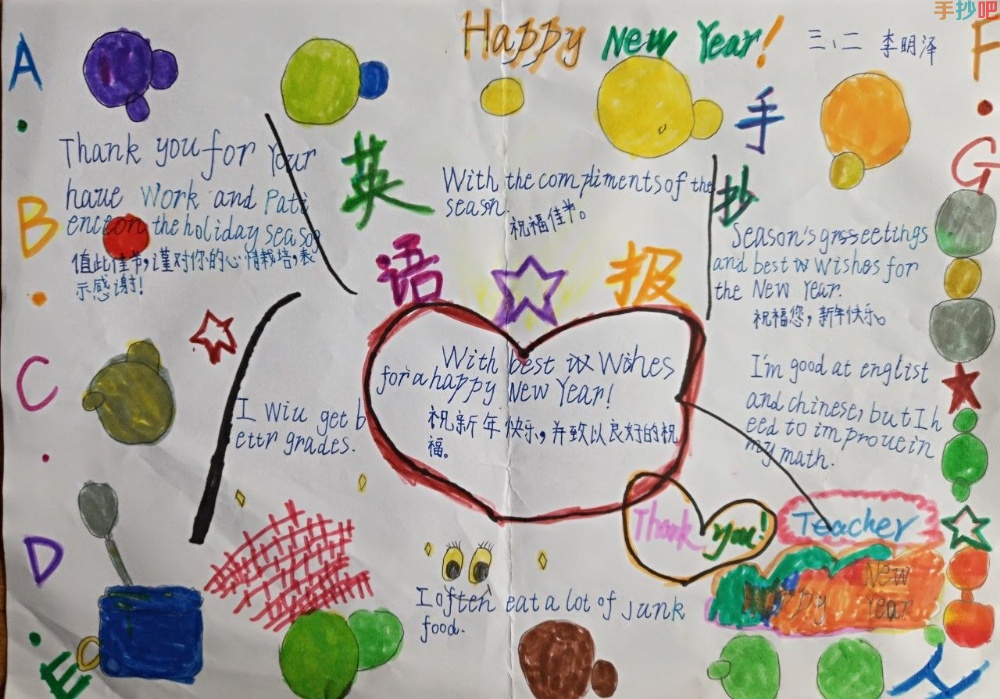 手抄吧
Happy New Year!
三、二 李明泽
A
B
C
D
E
F
G
英
语
手
抄
报
Thank you for Your
haue Work and Pati
enceon the holiday Seasog
值此佳节,谨对你的心情栽培,表
示感谢!
With the compliments of the
seasn.
祝福佳节。
Season's grsseetings
and best w Wishes for
the New Year.
祝福您,新年快乐。
With best iw Wihes
for a happy New Year!
祝新年快乐,并致以良好的祝
福。
I Wiu get b
ettr grades.
I'm good at englist
and chinese, but I h
eed to improuein
my math.
Thank you!
Teacher
Happy New
Year
I often eat a lot of Junk
food.